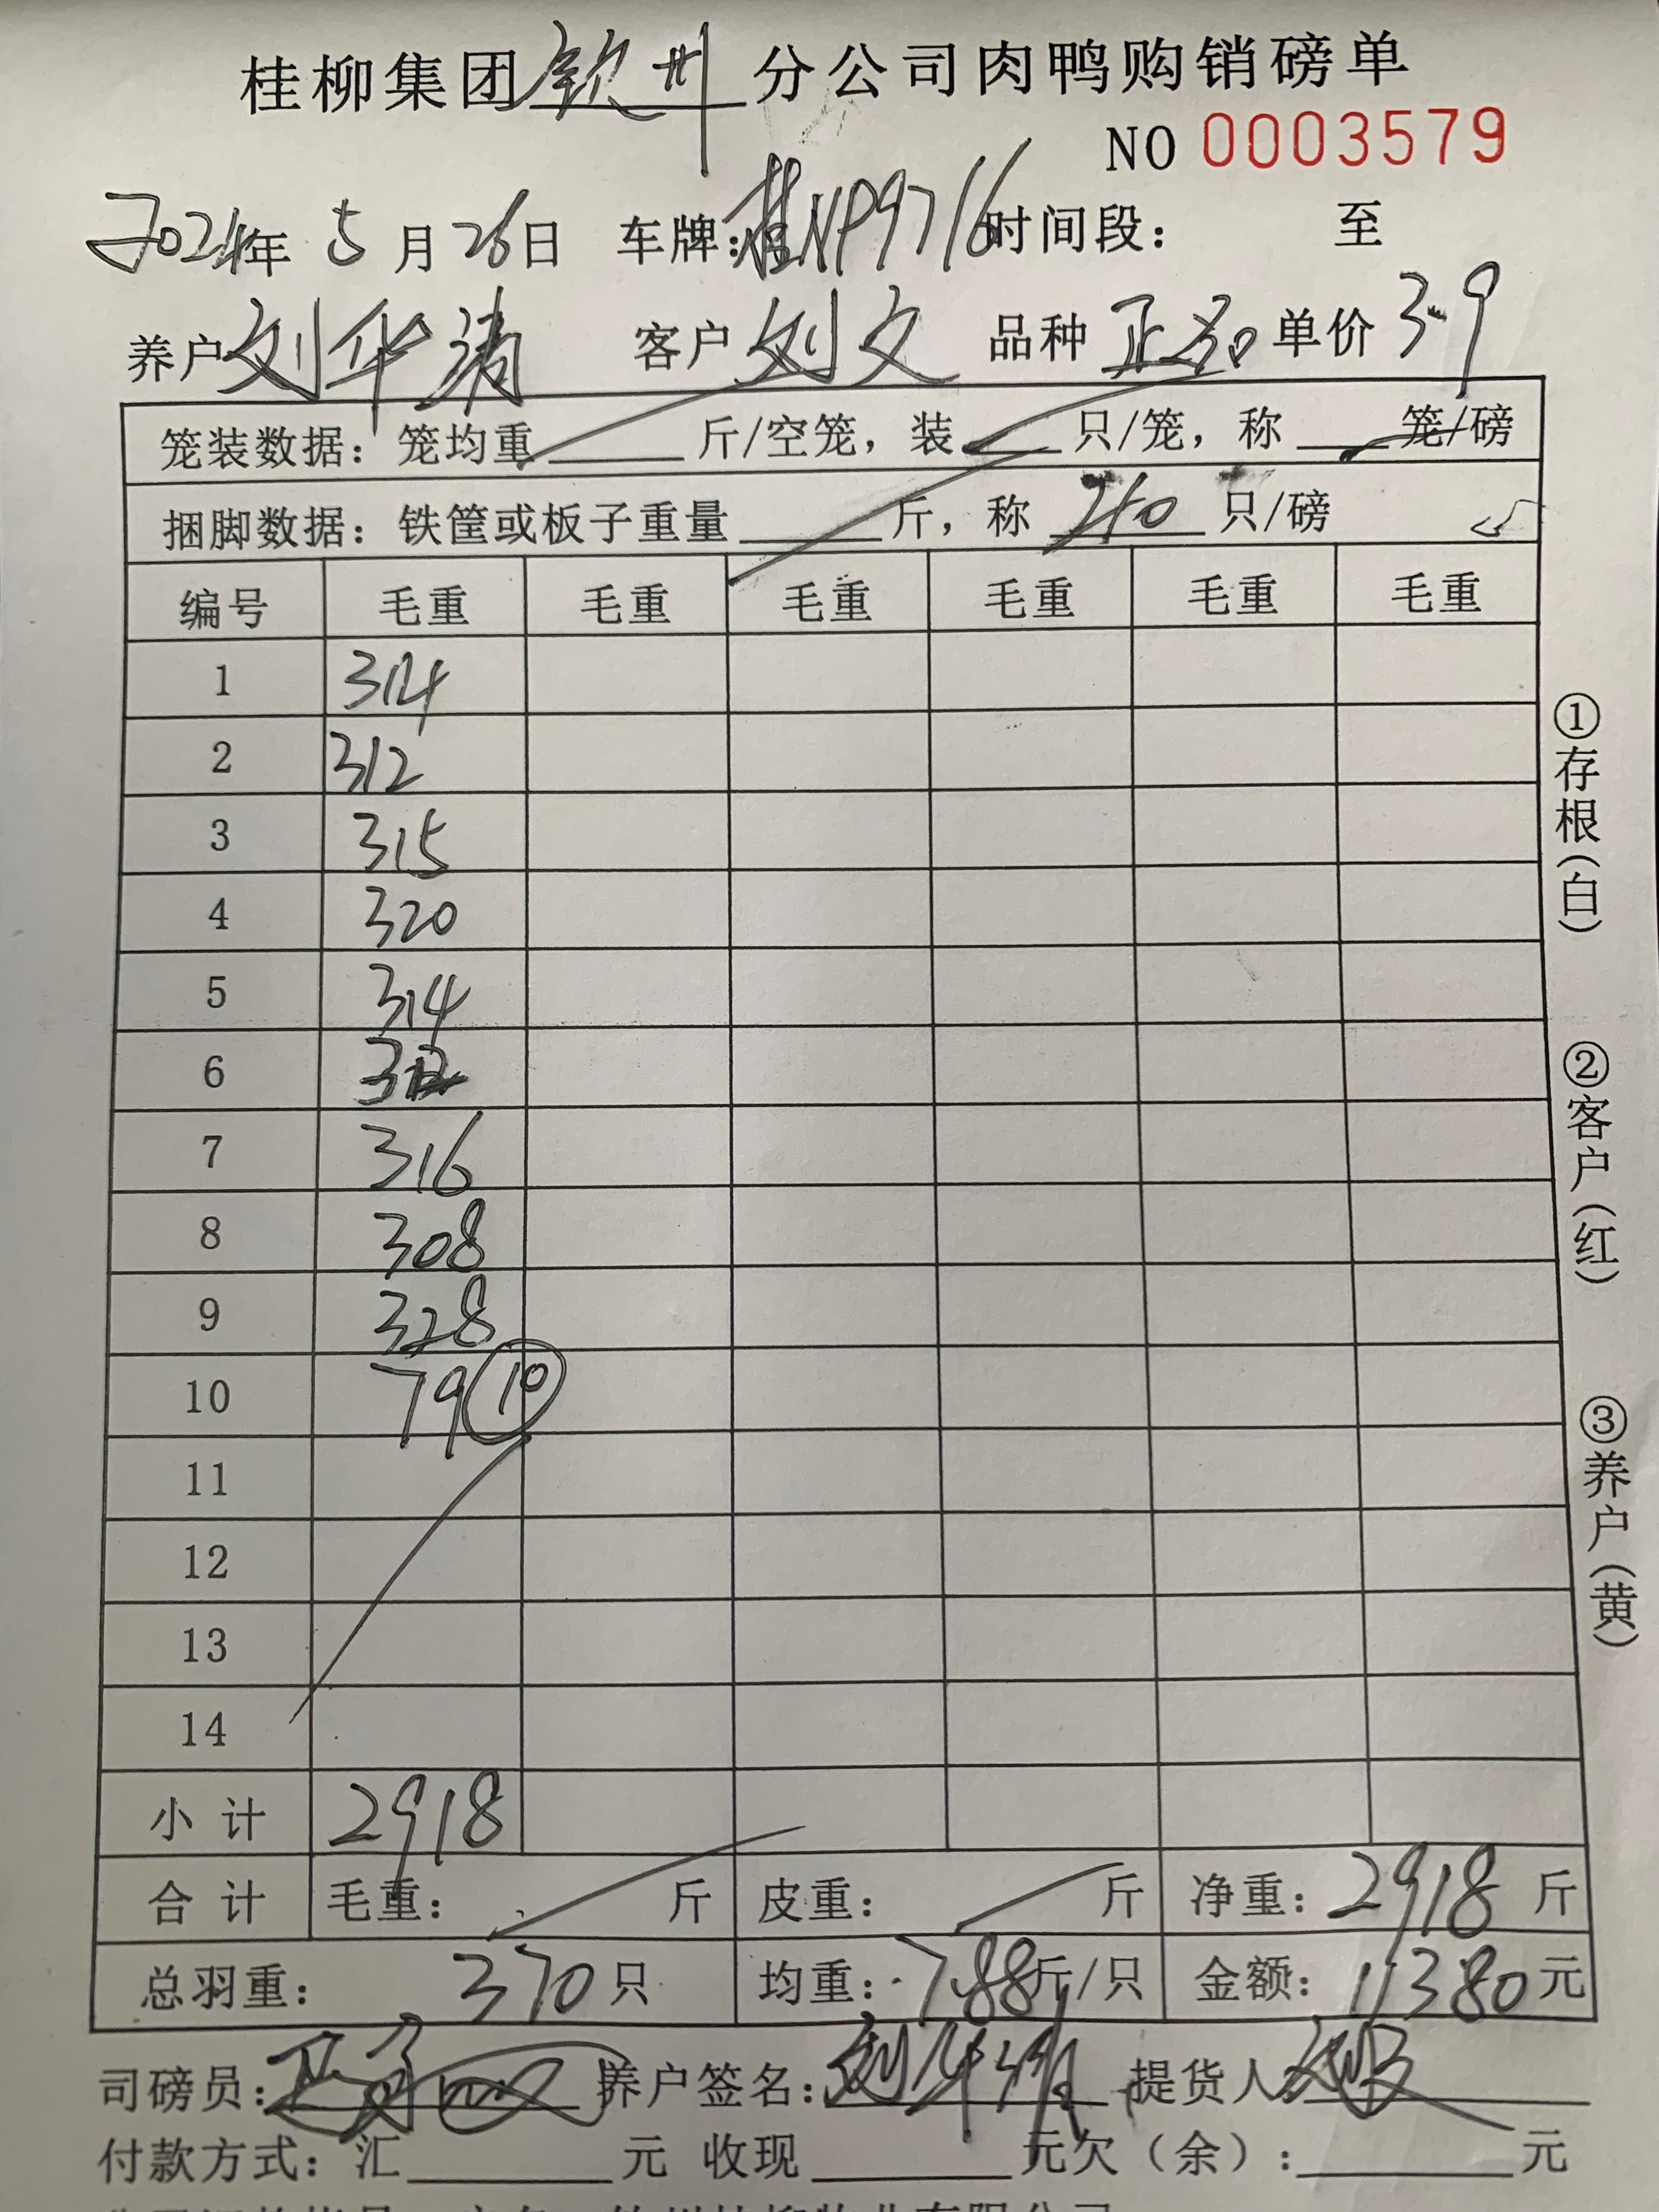 桂柳集团钦州分公司肉鸭购销磅单
NO 0003579
2024年 5月26日 车牌:桂NP9716 时间段: 至
养户 刘华清 客户 刘文 品种 正 单价 3.9
笼装数据: 笼均重____斤/空笼, 装____只/笼, 称____笼/磅
捆脚数据: 铁筐或板子重量____斤, 称 40 只/磅
编号 毛重 毛重 毛重 毛重 毛重 毛重
1 314
2 312
3 315
4 320
5 314
6 312
7 316
8 308
9 328
10 79 ⑩
11
12
13
14
小计 2918
合计 毛重: 斤 皮重: 斤 净重: 2918 斤
总羽重: 370只 均重: 7.88斤/只 金额: 11380元
司磅员: 养户签名: 刘华清 提货人 刘文
付款方式: 汇____元 收现____元欠(余):____元
①存根(白)
②客户(红)
③养户(黄)